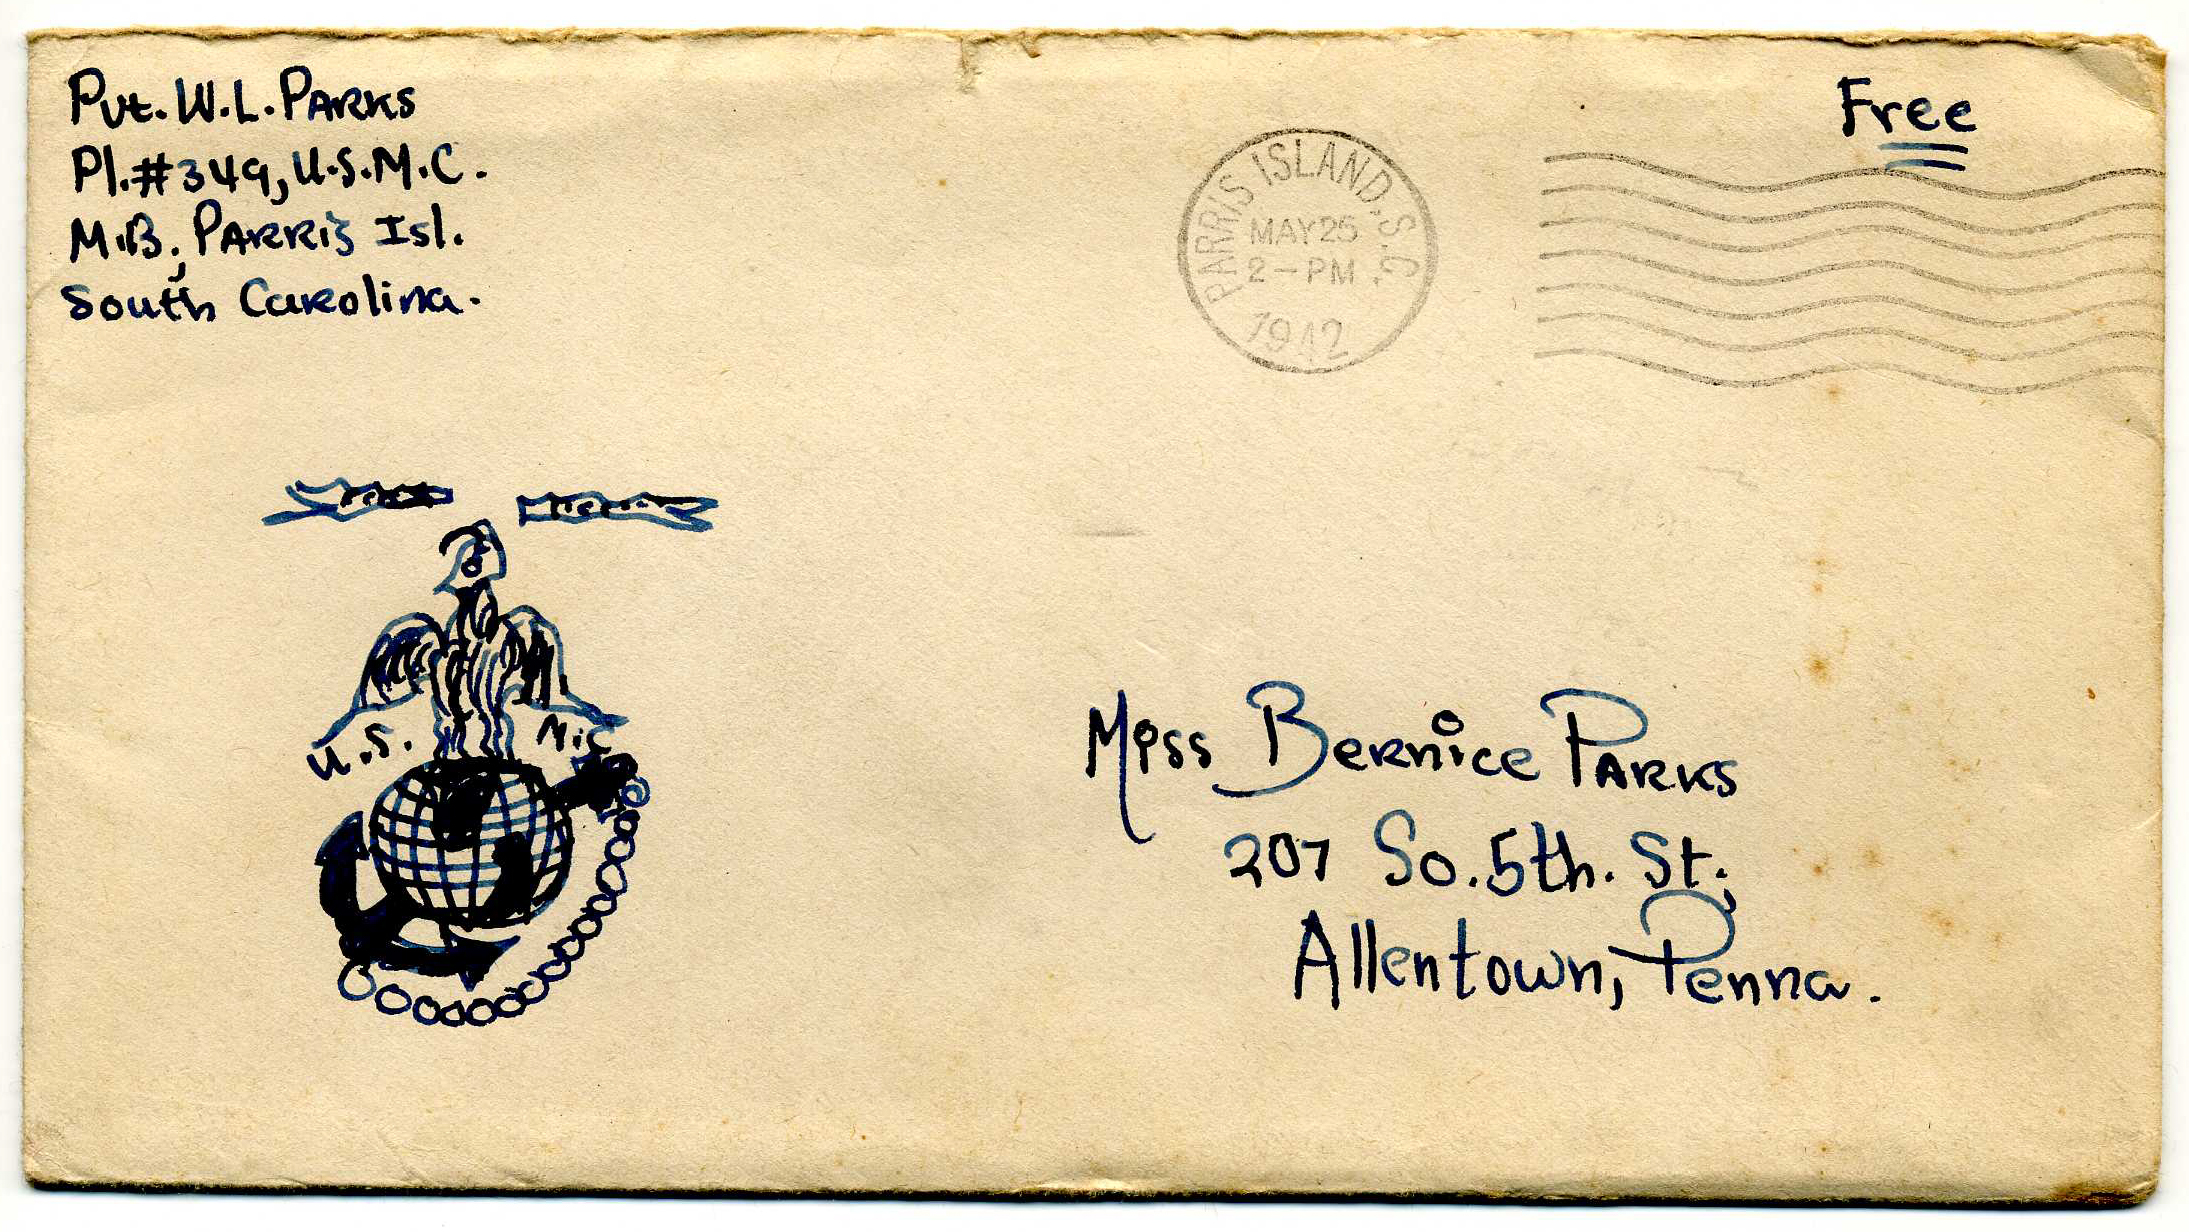 Pvt. W.L. PARKS
Pl.#349, U.S.M.C.
M.B., PARRIS Isl.
South Carolina.
Free
PARRIS ISLAND, S.C.
MAY 25
2-PM
1942
U.S. M.C.
Miss Bernice PARKS
207 So. 5th. St.,
Allentown, Penna.